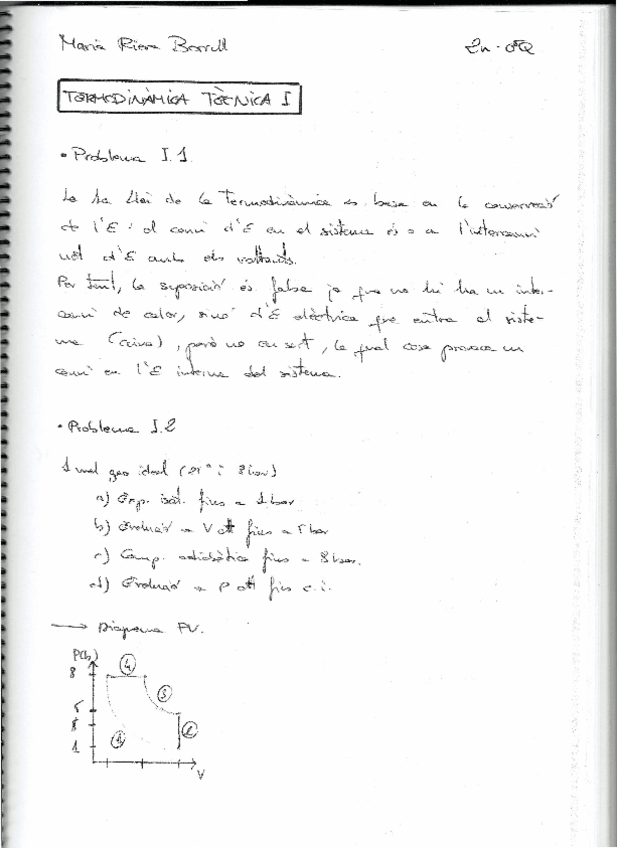 Maria Riera Borrell
TERMODINÀMICA TÈCNICA I
• Problema I.1.
La 1a Llei de la Termodinàmica es basa en la conservació
de l'E: el canvi d'E en el sistema és = a l'intercanvi
net d'E amb els voltants.
Per tant, la suposició és falsa ja que no hi ha un inter-
canvi de calor, sinó d'E elèctrica que entra al siste-
ma (), però no en surt, la qual cosa provoca un
canvi en l'E interna del sistema.
• Problema I.2
1 mol gas ideal (25° i 8 bar)
a) Exp. isot. fins a 1 bar
b) Evolució a V ctt fins a 5 bar
c) Comp. adiabàtica fins a 8 bar.
d) Evolució a P ctt fins c.i.
→ Diagrama PV.
P(b)
8 4
3
5
2
1 1
V